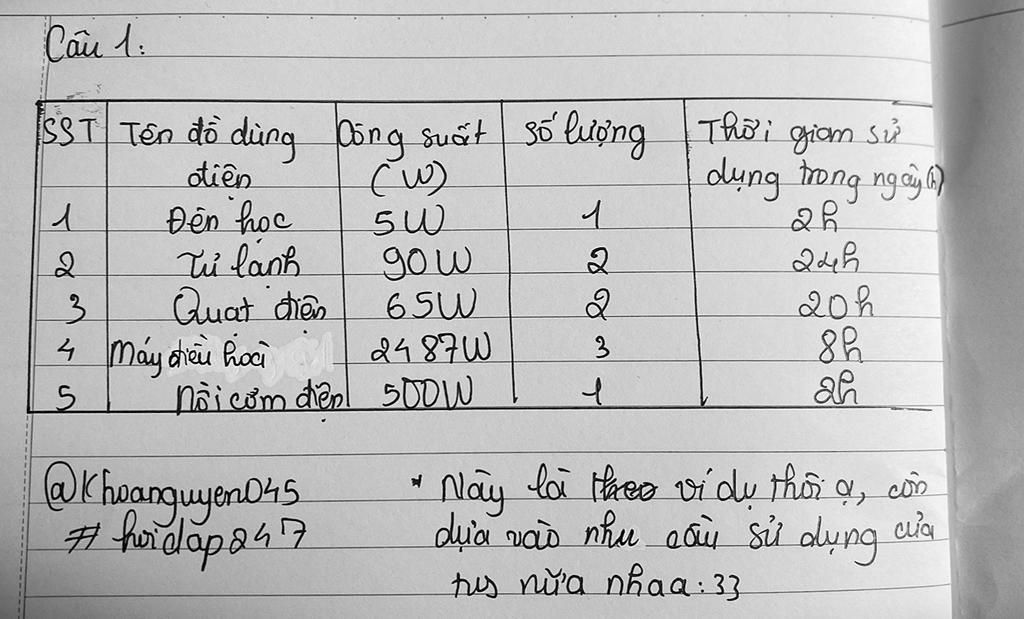 Câu 1:
SST Tên đồ dùng điện Công suất (W) Số lượng Thời gian sử dụng trong ngày (h)
1 Đèn học 5W 1 2h
2 Tủ lạnh 90W 2 24h
3 Quạt điện 65W 2 20h
4 Máy điều hoà 2487W 3 8h
5 Nồi cơm điện 500W 1 2h
@Khoanguyen045 * Này là theo ví dụ thôi ạ, còn
# hoidap247 dựa vào nhu cầu sử dụng của
tus nữa nhaa:33